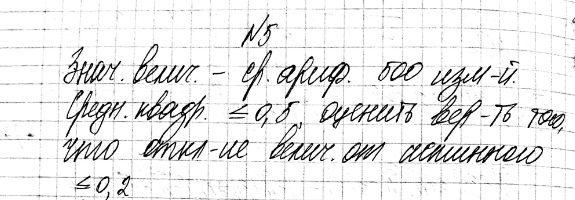 N5
Знач. велич. - ср. ариф. 500 изм-й.
Средн. квадр. ≤ 0,5. оценить вер-ть того,
что откл-ие велич. от истинного
≤ 0,2